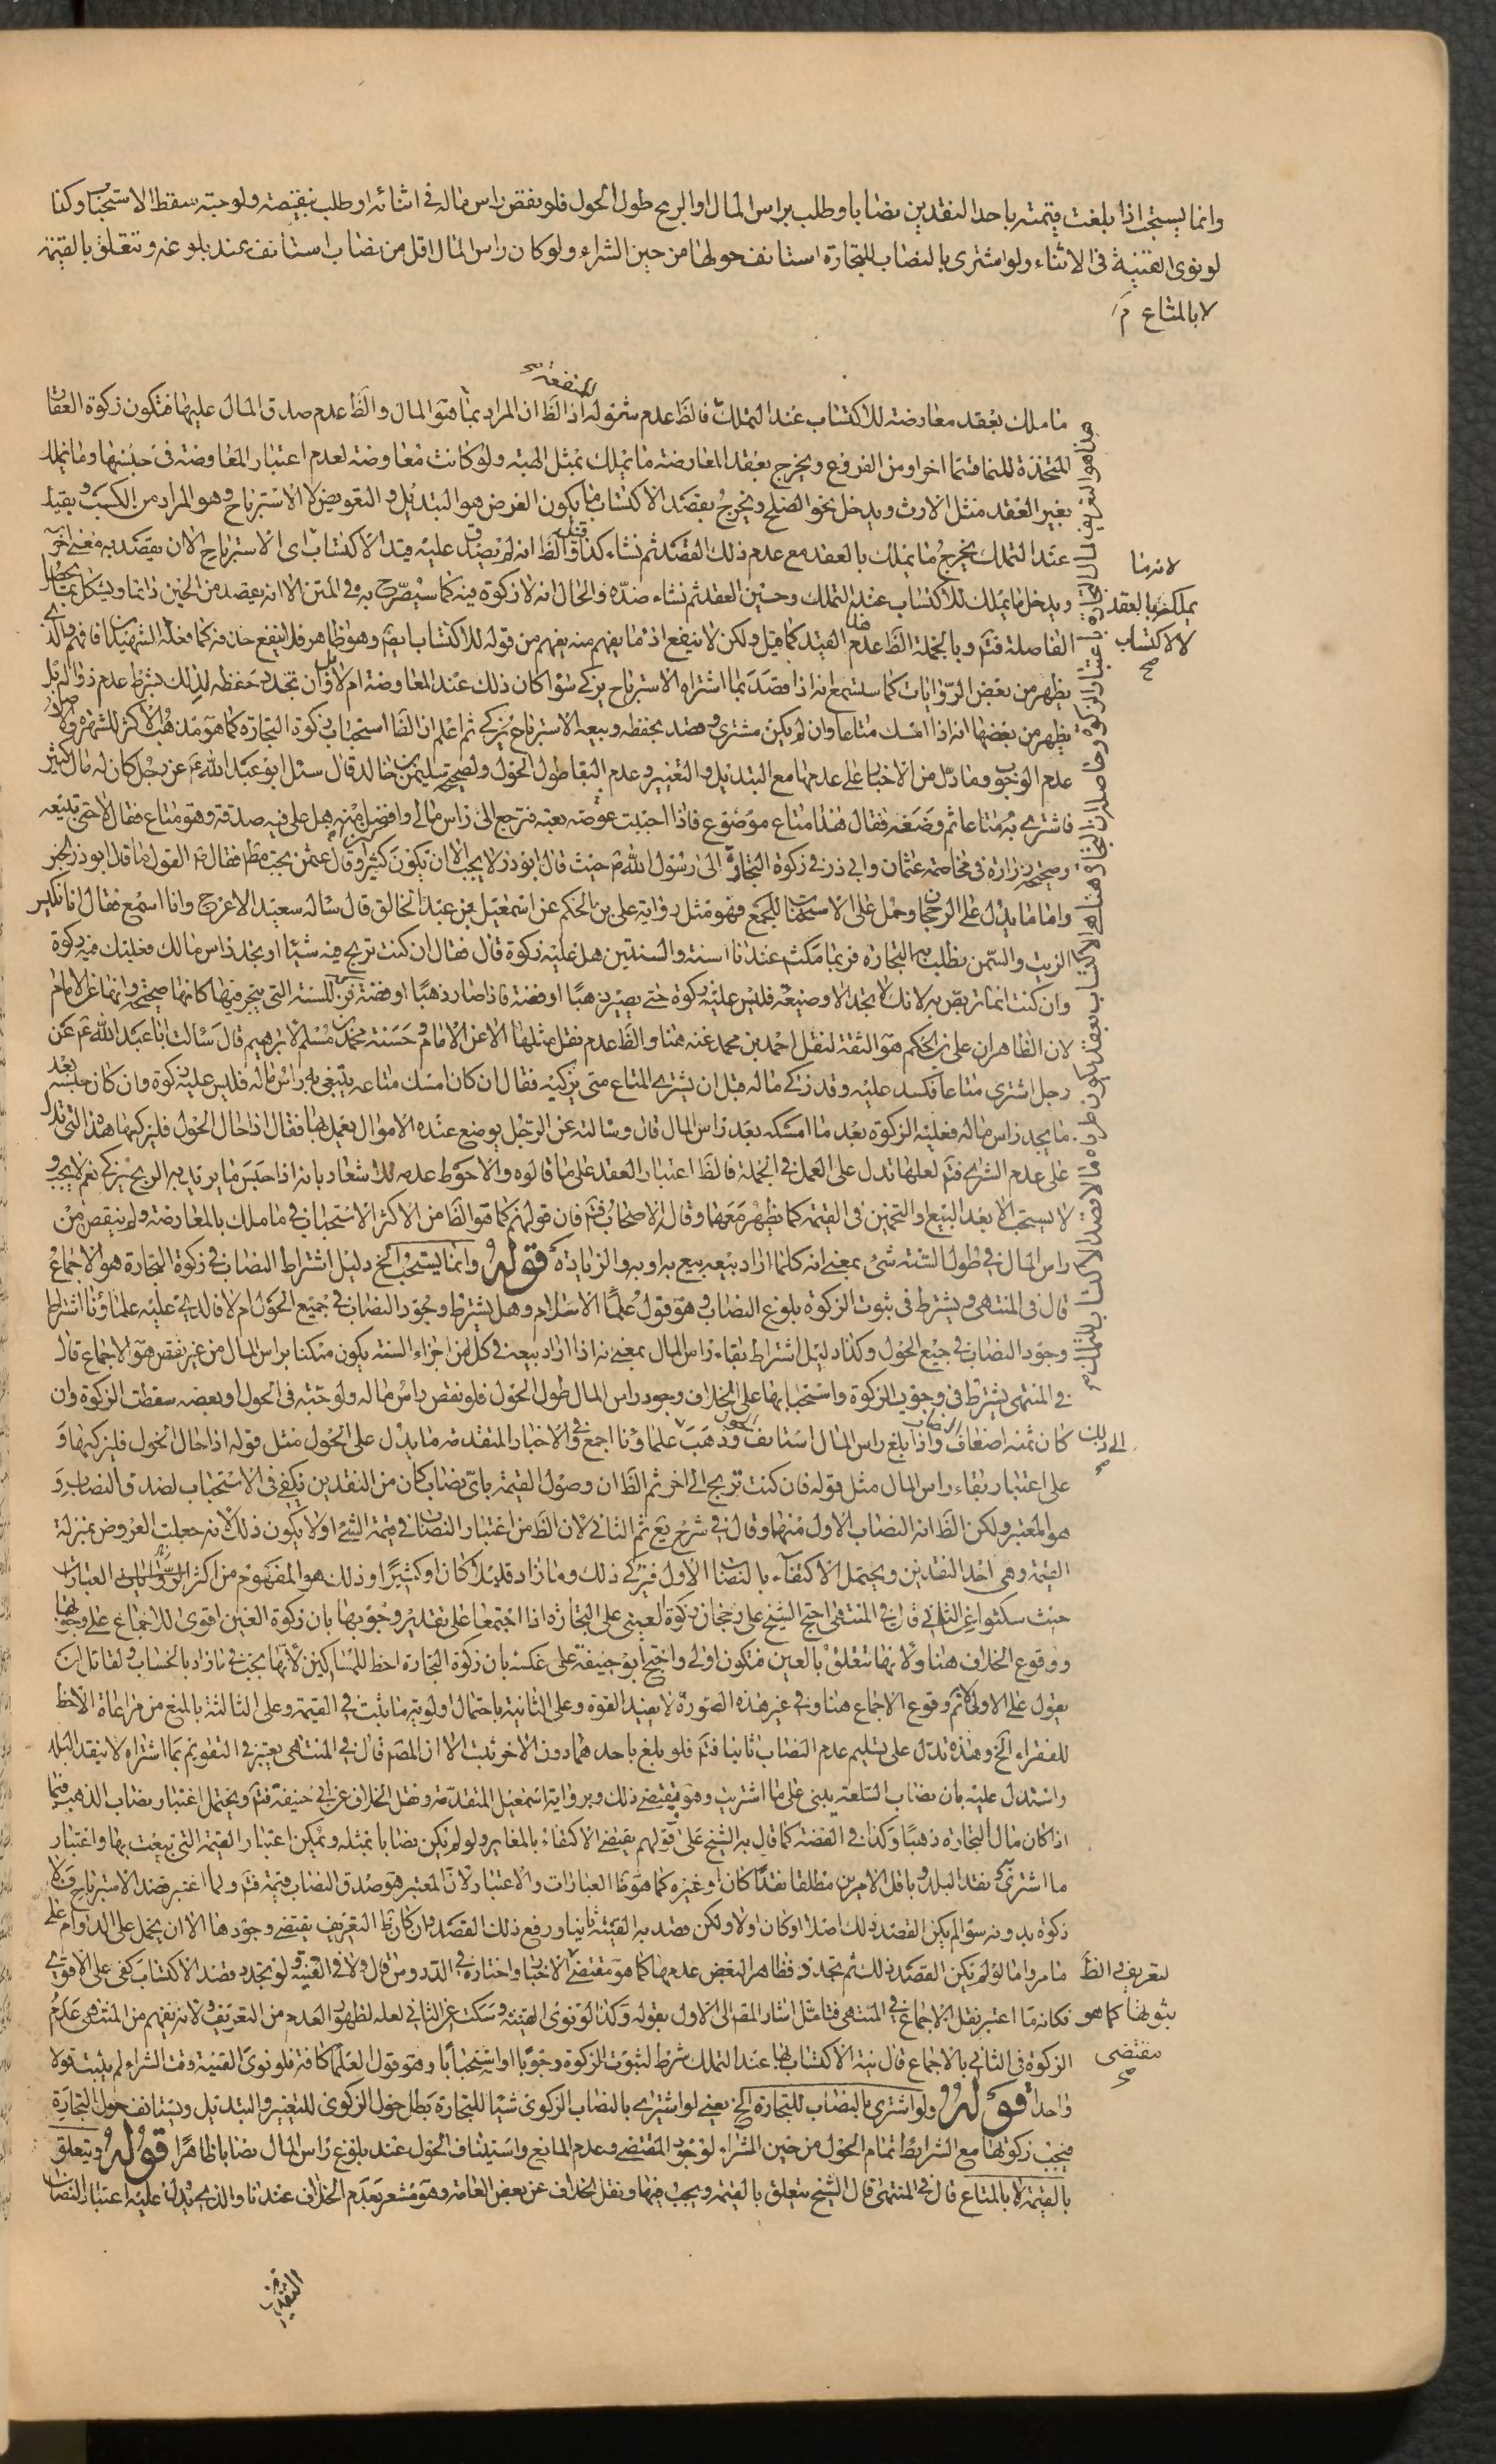 وانما يستحب اذا بلغت قيمته باحد النقدين نصابا وطلب براس المال او الربح طول الحول فلو نقص راس ماله فى اثنائه او طلب بنقيصة ولو حبة سقط الاستحباب وكذا
لو نوى القنية فى الاثناء ولو اشترى بالنصاب للتجارة استانف حولها من حين الشراء ولو كان راس المال اقل من نصاب استانف عند بلوغه وتتعلق بالقيمة
لا بالمتاع م
للمنفعة
ما ملك بعقد معاوضة للاكتساب عند التملك فالظ عدم شموله اذ الظ ان المراد بما هو المال والظ عدم صدق المال عليها فتكون زكوة العقار
المتخذة للنما قسما اخر او من الفروع ويخرج بعقد المعاوضة ما يملك بمثل الهبة ولو كانت معاوضة لعدم اعتبار المعاوضة فى جنسها وما يملك
بغير العقد مثل الارث ويدخل نحو الصلح ويخرج بقصد الاكتساب ما يكون الغرض هو التبديل والتعويض لا الاسترباح وهو المراد من الكسب وبقيد
عند التملك يخرج ما يملك بالعقد مع عدم ذلك القصد ثم نشاء كذا قيل والظ انه لم يصدق عليه قيد الاكتساب اى الاسترباح الا ان يقصد به معنى اخر
ويدخل ما يملك للاكتساب عند التملك وحسين العقد ثم نشاء ضده والحال انه لا زكوة فيه كما سيصرح به فى المتن الا انه يقصد من الحين دائما ويشكل
الفاصلة فتم وبالجملة الظ عدم القيد كما قيل ولكن لا ينفع اذ ما يفهم منه يفهم من قوله للاكتساب ايضا وهو ظاهر فلا ينفع حذفه كما فعله الشهيد فافهم والذى
يظهر من بعض الروايات كما ستسمع انه اذا قصد بما اشتراه الاسترباح يزكى سوا كان ذلك عند المعاوضة ام لا وان تجدد حفظه لذلك بشرط عدم زواله بل
يظهر من بعضها انه اذا امسك متاعا وان لم يكن مشترى وقصد بحفظه وبيعه الاسترباح يزكى ثم اعلم ان الظ استحباب زكوة التجارة كما هو مذهب الاكثر للشهرة والاصل
عدم الوجوب وما دل من الاخبار على عدمها مع التبديل والتغيير وعدم البقا طول الحول ولصحيحة سليمن بن خالد قال سئل ابو عبد الله ع عن رجل كان له مال كثير
فاشترى به متاعا ثم وضعه فقال هذا متاع موضوع فاذا احببت بعته فترجع الى راس مالى وافضل منه هل على فيه صدقة وهو متاع فقال لا حتى تبيعه
وصحيحة زرارة فى مخاصمة عثمان وابى ذر فى زكوة التجارة الى رسول الله ص حيث قال ابو ذر لا يجب الا ان يكون كنزا وقال عثمن يجب مط فقال ص القول ما قال ابو ذر الخبر
واما ما يدل على الرجحان وحمل على الاستحباب للجمع فهو مثل رواية على بن الحكم عن اسمعيل بن عبد الخالق قال ساله سعيد الاعرج وانا اسمع فقال انا نكبس
الزيت والسمن نطلب به التجارة فربما مكث عندنا السنة والسنتين هل عليه زكوة قال فقال ان كنت تربح فيه شيئا او تجد راس مالك فعليك فيه زكوة
وان كنت انما تربص به لانك لا تجد الا وضيعة فليس عليك زكوة حتى يصير ذهبا او فضة فاذا صار ذهبا او فضة فزكه للسنة التى يتجر فيها كانها صحيحة وانها عن الامام
لان الظاهر ان على بن الحكم هو الثقة لنقل احمد بن محمد عنه هنا والظ عدم نقل مثلها الا عن الامام وحسنة محمد بن مسلم لابرهيم قال سالت ابا عبد الله ع عن
رجل اشترى متاعا فكسد عليه وقد زكى ماله قبل ان يشترى المتاع متى يزكيه فقال ان كان امسك متاعه يبتغى به راس ماله فليس عليه زكوة وان كان حبسه بعد
ما يجد راس ماله فعليه الزكوة بعد ما امسكه بعد راس المال قال وسالته عن الرجل يوضع عنده الاموال يعمل بها فقال اذا حال الحول فليزكها هذا التى تدل
على عدم الشراء فتم لعلها تدل على العمل فى الجملة فالظ اعتبار العقد على ما قالوه والاحوط عدمه للاشعار بانه اذا حبس ما يريد به الربح يزكى نعم لا يجب و
لا يستحب الا بعد البيع او التخمين فى القيمة كما يظهر معها وقاله الاصحاب فتم فان قولهم كما هو الظ من الاكثر الاستحباب فى ما ملك بالمعاوضة ولم ينقص من
راس المال فى طول السنة شئ بمعنى انه كلما اراد بيعه يبيع به او به والزيادة قوله وانما يستحب الخ دليل اشتراط النصاب فى زكوة التجارة هو الاجماع
قال فى المنتهى ويشترط فى ثبوت الزكوة بلوغ النصاب وهو قول علماء الاسلام وهل يشترط وجود النصاب فى جميع الحول ام لا فالذى عليه علماؤنا اشتراط
وجود النصاب فى جميع الحول وكذا دليل اشتراط بقاء راس المال بمعنى انه اذا اراد بيعه فى كل من اجزاء السنة يكون متمكنا براس المال من غير نقص هو الاجماع قال
فى المنتهى يشترط فى وجوب الزكوة واستحبابها على الخلاف وجود راس المال طول الحول فلو نقص راس ماله ولو حبة فى الحول او بعضه سقطت الزكوة وان
كان ثمنه اضعاف النصاب واذا بلغ راس المال استانف الحول وذهب علماؤنا اجمع والاخبار المتقدمة ما يدل على الحول مثل قوله اذا حال الحول فليزكها و
على اعتبار بقاء راس المال مثل قوله فان كنت تربح الى اخر ثم الظ ان وصول القيمة باى نصاب كان من النقدين يكفى فى الاستحباب لصدق النصاب و
هو المعتبر ولكن الظ انه النصاب الاول منها وقال فى شرح يع ثم الثانى لان الظ من اعتبار النصاب فى قيمة الشئ او لا يكون ذلك لانه جعلت العروض بمنزلة
القيمة وهى احد النقدين ويحتمل الاكتفاء بالنصاب الاول فيزكى ذلك وما زاد قليلا كان او كثيرا وذلك هو المفهوم من اكثر العبارات
حيث سكتوا عن الثانى قال فى المنتهى احتج الشيخ على رجحان زكوة العينى على التجارة اذا اجتمعا على تقدير وجوبها بان زكوة العين اقوى للاجماع على وجوبها
ووقوع الخلاف هنا ولانها تتعلق بالعين فتكون اولى واحتج ابو حنيفة على عكسه بان زكوة التجارة احظ للمساكين لانها يجب فى ما زاد بالحساب ولقائل ان
يقول على الاولى وقوع الاجماع هنا وفى غير هذه الصورة لا يفيد القوة وعلى الثانية باحتمال اولوية ما يثبت فى القيمة وعلى الثالثة بالمنع من مراعاة الاحظ
للفقراء الخ وهذه تدل على تسليم عدم النصاب ثانيا فتم فلو بلغ باحدهما دون الاخر ثبت الا ان المصم قال فى المنتهى يعتبر فى التقويم بما اشتراه لا بنقد البلد
واستدل عليه بان نصاب السلعة يبنى على ما اشتريت وهو يقتضى ذلك وبرواية اسمعيل المتقدمة ونقل الخلاف عن ابى حنيفة فتم ويحتمل اعتبار نصاب الذهب فيما
اذا كان مال التجارة ذهبا وكذا فى الفضة كما قال به الشيخ على وقولهم يقتضى الاكتفاء بالمغاير ولو لم يكن نصابا بمثله ويمكن اعتبار القيمة التى بيعت بها واعتبار
ما اشترى ونقد البلد وباقل الامرين مطلقا نقدا كان او غيره كما هو ظ العبارات والاعتبار لان المعتبر هو صدق النصاب قيمة فتم ولما اعتبر قصد الاسترباح فلا
زكوة بدونه سوا لم يكن القصد بذلك اصلا او كان اولا ولكن قصد به القنية ثانيا ورفع ذلك القصد وان كان ظ التعريف يقتضى وجودها الا ان يحمل على الدوام على
ما مر واما لو لم يكن القصد بذلك ثم تجدد فظاهر البعض عدمها كما هو مقتضى الاخبار واختاره فى الدروس قال ولا فى القنية ولو تجدد قصد الاكتساب كفى على الاقوى
فكانه ما اعتبر نقل الاجماع فى المنتهى فتامل اشار المصم الى الاول بقوله وكذا لو نوى القنية وسكت عن الثانى لعله لظهور العدم من التعريف ولانه يفهم من المنتهى عدم
الزكوة فى الثانى بالاجماع قال نية الاكتساب بها عند التملك شرط لثبوت الزكوة وجوبا او استحبابا وهو قول العلما كافة فلو نوى القنية وقت الشراء لم يثبت قولا
واحدا قوله ولو اشترى بالنصاب للتجارة الخ يعنى لو اشترى بالنصاب الزكوى شيئا للتجارة بطل حول الزكوى للتغيير والتبديل ويستانف حول التجارة
فيجب زكوتها مع الشرائط تمام الحول من حين الشراء لوجود المقتضى وعدم المانع واستيناف الحول عند بلوغ راس المال نصابا ظاهرا قوله وتتعلق
بالقيمة لا بالمتاع قال فى المنتهى قال الشيخ يتعلق بالقيمة ويجب فيها ونقل الخلاف عن بعض العامة وهو مشعر بعدم الخلاف عندنا والذى يدل عليه اعتبار النصاب
هذا هو التعريف لمال التجارة باعتبار الزكوة وحاصله ان التجارة هنا هى الاكتساب بعقد
لانه ما
يملك بالعقد
لا للاكتساب
صح
الى ذلك
صح
التعريف الظ
ثبوتها كما هو
مقتضى
صح